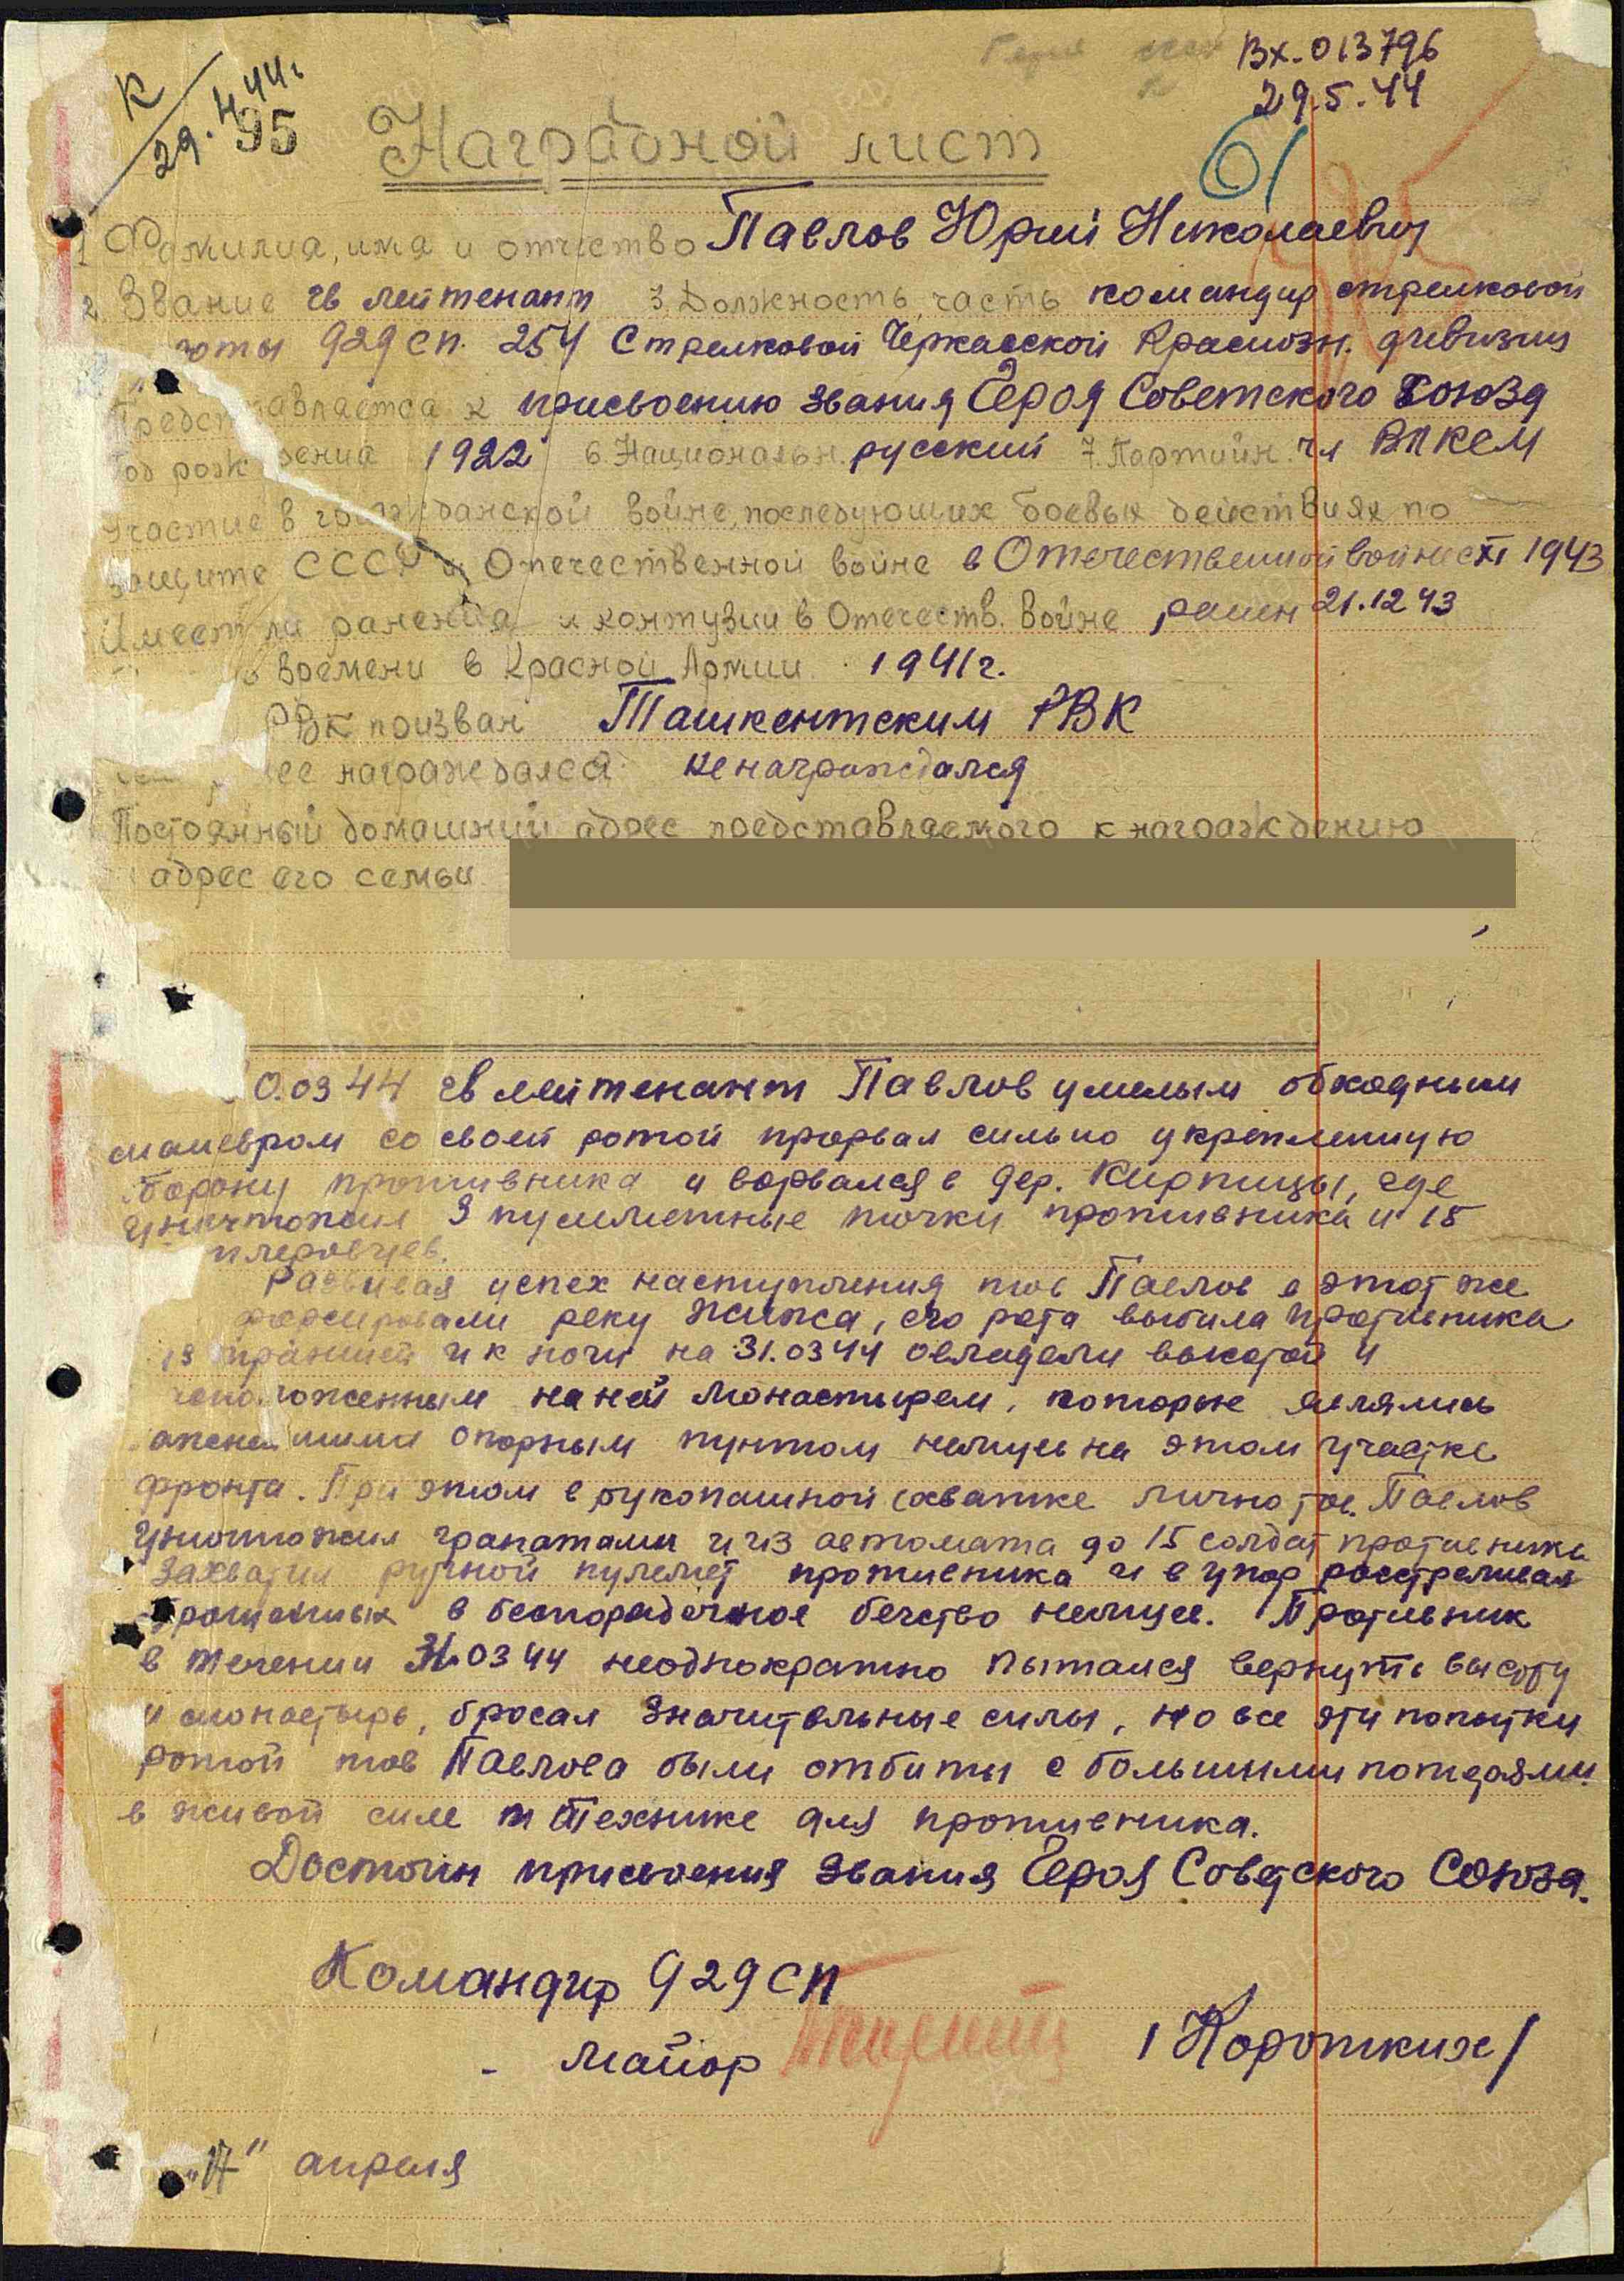 К
29.4.44г
95
Вх. 013796
29.5.44
61
Наградной лист
1 Фамилия, имя и отчество Павлов Юрий Николаевич
2. Звание гв лейтенант 3. Должность, часть командир стрелковой
роты 929 сп. 254 Стрелковой Черкасской Краснозн. дивизии
Представляется к присвоению звания Героя Советского Союза
год рождения 1922 6. Национальн. русский 7. Партийн. чл ВЛКСМ
Участие в гражданской войне, последующих боевых действиях по
защите СССР и Отечественной войне в Отечественной войне с XI 1943
Имеет ли ранения и контузии в Отечеств. войне ранен 21.12 43
времени в Красной Армии 1941 г.
РВК призван Ташкентским РВК
награждался не награждался
Постоянный домашний адрес представляемого к награждению
адрес его семьи
0.03 44 гв лейтенант Павлов умелым обходным
маневром со своей ротой прорвал сильно укрепленную
оборону противника и ворвался в дер. Кирпицы, где
уничтожил 3 пулеметные точки противника и 15
тлеровцев.
Развивая успех наступления тов Павлов в этот же
форсировали реку Жижса, его рота выбила противника
из траншей и к ночи на 31.03 44 овладели высотой и
расположенным на ней монастырем, которые являлись
опорным пунктом немцев на этом участке
фронта. При этом в рукопашной схватке лично тов. Павлов
уничтожил гранатами и из автомата до 15 солдат противника
захватил ручной пулемет противника и в упор расстреливал
брошенных в беспорядочное бегство немцев. Противник
в течении 31.03 44 неоднократно пытался вернуть высоту
и монастырь, бросал значительные силы, но все эти попытки
ротой тов Павлова были отбиты с большими потерями
в живой силе и технике для противника.
Достоин присвоения звания Героя Советского Союза.
Командир 929 СП
- майор /Коротких/
"17" апреля